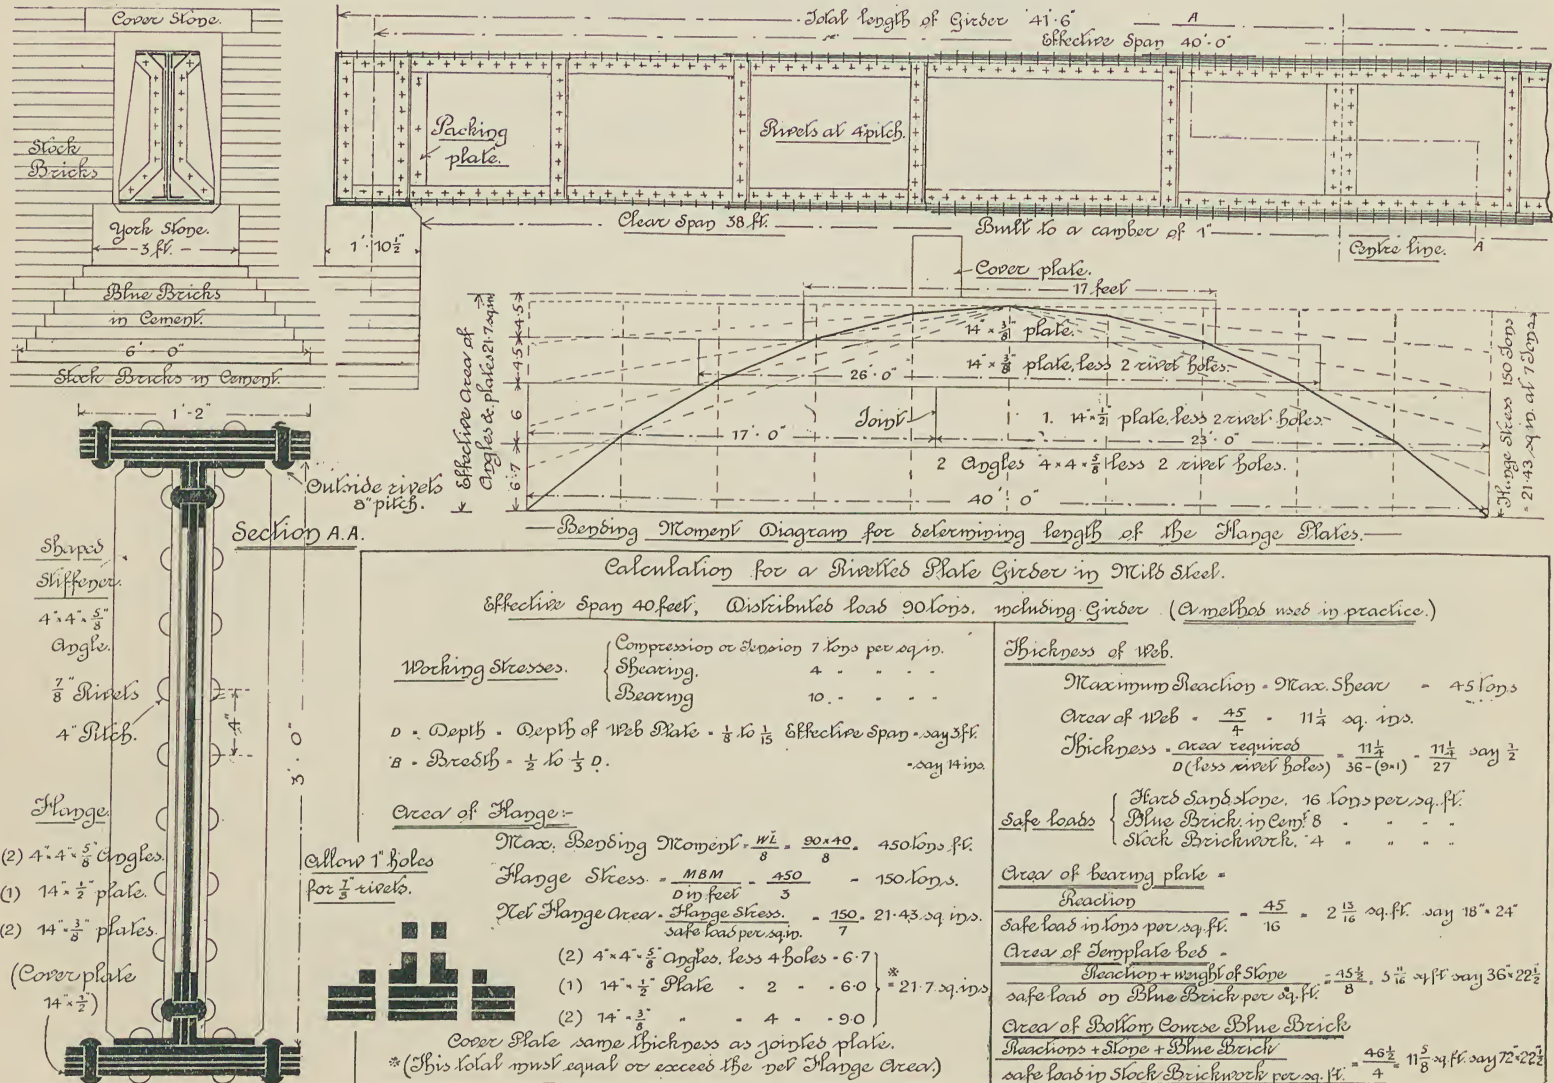 Cover Stone.
Stock
Bricks
York Stone.
3 ft.
Blue Bricks
in Cement.
6'·0"
Stock Bricks in Cement.
Total length of Girder 41'·6"
A
Effective Span 40'·0"
Packing
plate.
Rivets at 4" pitch.
1'·10 1/2"
Clear Span 38 ft.
Built to a camber of 1"
Centre line.
A
Cover plate.
17 feet
14" × 3/8" plate.
14" × 3/8" plate, less 2 rivet holes.
26'·0"
Joint
1. 14" × 1/2" plate, less 2 rivet holes.
17'·0"
23'·0"
2 Angles 4 × 4 × 5/8 less 2 rivet holes.
40'·0"
Effective Area of
Angles & plates 21·7 sq.in
6·7
6
4·5
4·5
Flange Stress 150 Tons
= 21·43 sq in. at 7 Tons
Bending Moment Diagram for determining length of the Flange Plates.
1'·2"
Outside rivets
8" pitch.
Section A.A.
Shaped
Stiffener.
4" × 4" × 5/8"
Angle.
7/8" Rivets
4" Pitch.
4"
3'·0"
Flange.
(2) 4" × 4" × 5/8" Angles.
(1) 14" × 1/2" plate.
(2) 14" × 3/8" plates.
(Cover plate
14" × 1/2")
Allow 1" holes
for 7/8" rivets.
Calculation for a Rivetted Plate Girder in Mild Steel.
Effective Span 40 feet, Distributed load 90 tons, including Girder (A method used in practice.)
Working Stresses.
Compression or Tension 7 tons per sq.in.
Shearing. 4 " " "
Bearing 10 " " "
D = Depth = Depth of Web Plate = 1/8 to 1/15 Effective Span = say 3 ft.
B = Bredth = 1/2 to 1/3 D. = say 14 ins.
Area of Flange:-
Max. Bending Moment = WL/8 = 90×40/8 = 450 tons ft.
Flange Stress = MBM/D in feet = 450/3 = 150 tons.
Net Flange Area = Flange Stress./safe load per sq.in. = 150/7 = 21·43 sq. ins.
(2) 4" × 4" × 5/8" Angles, less 4 holes = 6·7
(1) 14" × 1/2" Plate " 2 " = 6·0
(2) 14" × 3/8" " " 4 " = 9·0
* = 21·7 sq.ins
Cover Plate same thickness as jointed plate.
*(This total must equal or exceed the net Flange Area.)
Thickness of Web.
Maximum Reaction = Max. Shear = 45 tons
Area of Web = 45/4 = 11 1/4 sq. ins.
Thickness = area required/D (less rivet holes) = 11 1/4/36-(9×1) = 11 1/4/27 say 1/2
Safe loads
Hard Sandstone, 16 tons per sq. ft.
Blue Brick in Cemt. 8 " " "
Stock Brickwork. 4 " " "
Area of bearing plate =
Reaction/safe load in tons per sq. ft. = 45/16 = 2 13/16 sq.ft. say 18" × 24"
Area of Template bed =
Reaction + weight of Stone/safe load on Blue Brick per sq.ft. = 45 1/2/8 = 5 11/16 sq ft say 36" × 22 1/2
Area of Bottom Course Blue Brick
Reactions + Stone + Blue Brick/safe load in Stock Brickwork per sq. ft. = 46 1/2/4 = 11 5/8 sq. ft. say 72" × 22 1/2